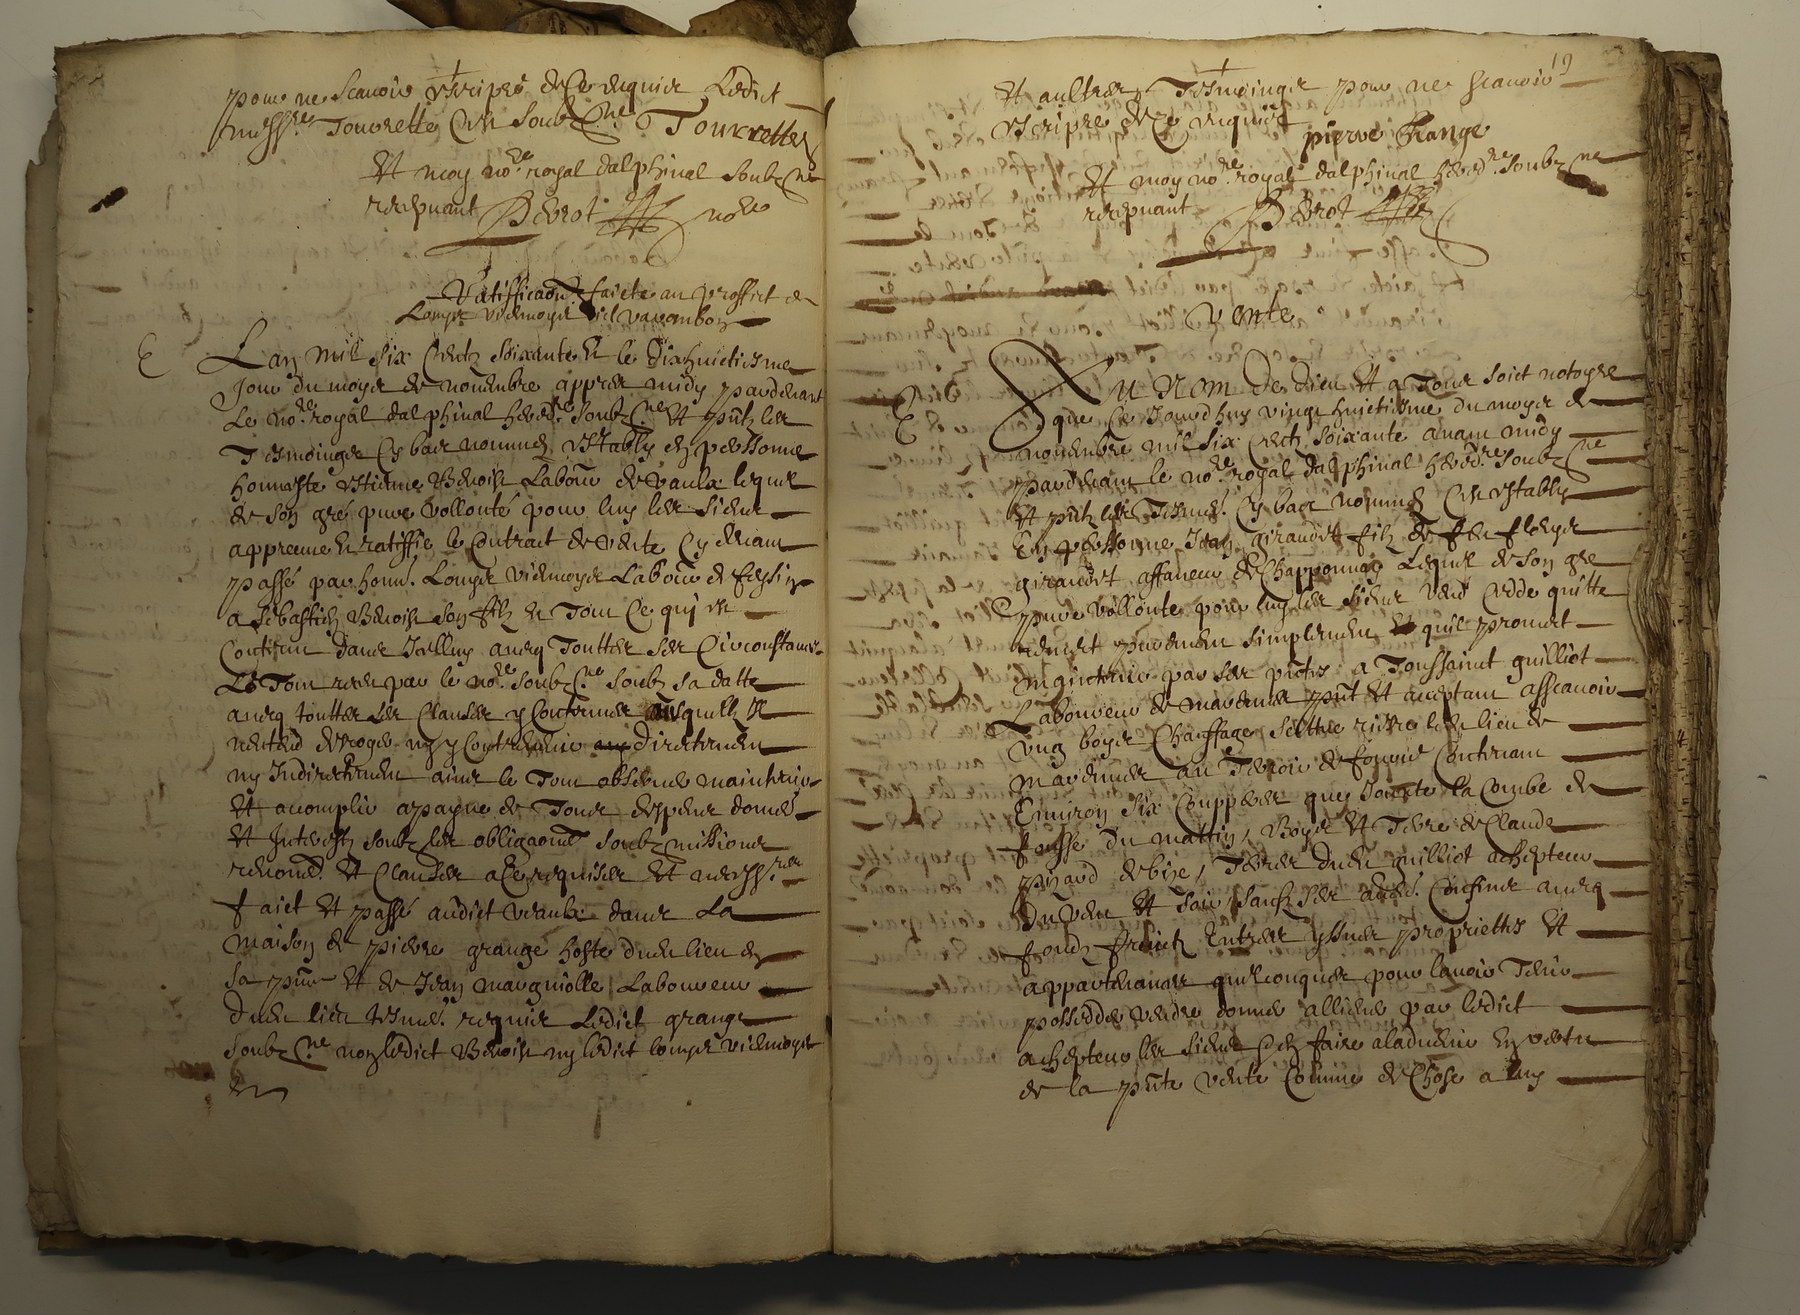 pour ne scavoir escripre de ce enquier Ledict
mess.re Tourrette cest soubz.ne Tourrettes
Et moy no.re royal dalphinal soubz.ne
recepuant Bevrot no.re
Ratifficaon faicte au proffict de
Lomyer viremoyer
E Lan mil six centz soixante et le dixhuictiesme
Jour du moys de novembre appres midy pardevant
Le no.re royal dalphinal hered.re soubz.ne Et pntz les
Tesmoingz cy bas nommez estably en personne
honneste estienne Benoist Labour de vaulx lequel
de son gré pure vollonté pour luy les siens
appreuve et ratiffie le contract de vente cy devant
passé par hons. viemoyer Labour de feysin
a sebastien Benoist son filz et Tout ce qui est
Contenu dans Icelluy avec Touttes ses circonstances
Le Tout receu par le no.re soubz.ne soubz sa datte
avec touttes les clauses y contenues ausquelz Il
nentend desroger ny y contrevenir directement
ny Indirectement ains le Tout observer maintenir
Et acomplir a payne de Tous despens domes
Et Interestz soubz les obligaons soubzmissions
renons. Et clauses a ce requises Et necess.res
faict Et passé audict vaulx dans La
maison de pierre grange hoste dudt lieu en
sa pnce Et de Jean margniolle Laboureur
dudt lieu tesms. requier Ledict grange
soubz.ne non ledict Benoist ny ledict viemoyer
19
Et aultres Tesmoingz pour ne scavoir
escripre de ce enquier pierre Grange
Et moy no.re royal dalphinal hered.re soubz.ne
recepuant Bevrot
Vente
E Au Nom de dieu Et a Tous soict notoyre
que ce Jourdhuy vingt huictiesme du moys de
novembre mil six centz soixante avant midy
pardevant le no.re royal dalphinal hered.re soubz.ne
Et pntz les Tesms. cy bas nommez cest estably
En personne Jean giraudet filz de feu
giraudet affaneur de Chapponnay Lequel de son gre
pure vollonte pour luy les siens vend cedde quitte
remect purement simplement quil promect
maintenir par ses pntes a Toussainct guilliot
Laboureur de marennes pnt Et aceptant asscavoir
Ung boys Chauffage riere le lieu de
marennes au Terroir de contenant
Environ six couppees que Jouxte la combe de
fousse du mattin, Boys Et Terre de Claude
pinard de bize, Terres dudt guilliot achepteur
du vent Et soir, saufz ses aultres confins avec
fondz fruictz Entrees yssues proprietes Et
appartenances quelconques pour lavoir Tenir
possedder vendre donner alliener par ledict
achepteur les siens et en faire aladvenir En vertu
de la pnte vente comme de chose a luy